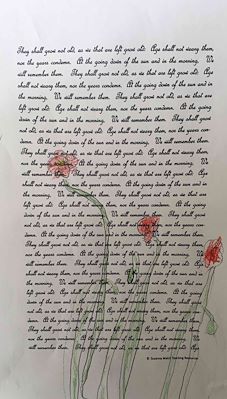 They shall grow not old, as we that are left grow old. Age shall not weary them,
nor the years condemn. At the going down of the sun and in the morning, We
will remember them. They shall grow not old, as we that are left grow old. Age
shall not weary them, nor the years condemn. At the going down of the sun and in
the morning, We will remember them. They shall grow not old, as we that are
left grow old. Age shall not weary them, nor the years condemn. At the going
down of the sun and in the morning, We will remember them. They shall grow
not old, as we that are left grow old. Age shall not weary them, nor the years con-
demn. At the going down of the sun and in the morning, We will remember them.
They shall grow not old, as we that are left grow old. Age shall not weary them,
nor the years condemn. At the going down of the sun and in the morning, We
will remember them. They shall grow not old, as we that are left grow old. Age
shall not weary them, nor the years condemn. At the going down of the sun and in
the morning, We will remember them. They shall grow not old, as we that are
left grow old. Age shall not weary them, nor the years condemn. At the going
down of the sun and in the morning, We will remember them. They shall grow
not old, as we that are left grow old. Age shall not weary them, nor the years con-
demn. At the going down of the sun and in the morning, We will remember them.
They shall grow not old, as we that are left grow old. Age shall not weary them,
nor the years condemn. At the going down of the sun and in the morning, We
will remember them. They shall grow not old, as we that are left grow old. Age
shall not weary them, nor the years condemn. At the going down of the sun and in
the morning, We will remember them. They shall grow not old, as we that are
left grow old. Age shall not weary them, nor the years condemn. At the going
down of the sun and in the morning, We will remember them. They shall grow
not old, as we that are left grow old. Age shall not weary them, nor the years con-
demn. At the going down of the sun and in the morning, We will remember them.
They shall grow not old, as we that are left grow old. Age shall not weary them,
nor the years condemn. At the going down of the sun and in the morning, We
will remember them.
© Suzanne Teaching Resources